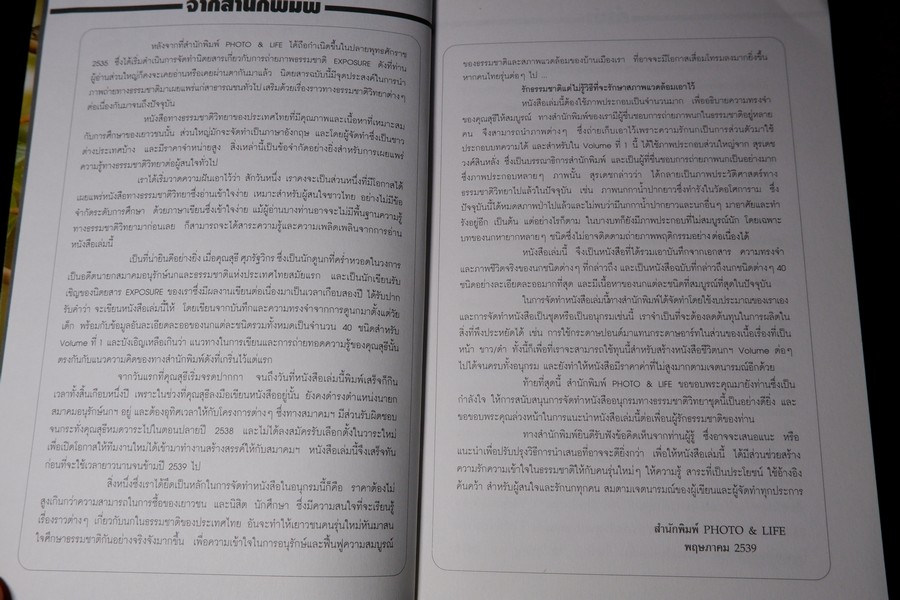 จากสำนักพิมพ์
หลังจากที่สำนักพิมพ์ PHOTO & LIFE ได้ถือกำเนิดขึ้นในปลายพุทธศักราช
2535 ซึ่งได้เริ่มดำเนินการจัดทำนิตยสารเกี่ยวกับการถ่ายภาพธรรมชาติ EXPOSURE ดังที่ท่าน
ผู้อ่านส่วนใหญ่ก็คงจะเคยอ่านหรือเคยผ่านตากันมาแล้ว นิตยสารฉบับนี้มีจุดประสงค์ในการนำ
ภาพถ่ายทางธรรมชาติมาเผยแพร่แก่สาธารณชนทั่วไป เสริมด้วยเรื่องราวทางธรรมชาติวิทยาต่างๆ
ต่อเนื่องกันมาจนถึงปัจจุบัน
หนังสือทางธรรมชาติวิทยาของประเทศไทยที่มีคุณภาพและเนื้อหาที่เหมาะสม
กับการศึกษาของเยาวชนนั้น ส่วนใหญ่มักจะจัดทำเป็นภาษาอังกฤษ และโดยผู้จัดทำซึ่งเป็นชาว
ต่างประเทศบ้าง และมีราคาจำหน่ายสูง สิ่งเหล่านี้เป็นข้อจำกัดอย่างยิ่งสำหรับการเผยแพร่
ความรู้ทางธรรมชาติวิทยาต่อผู้สนใจทั่วไป
เราได้เริ่มวาดความฝันเอาไว้ว่า สักวันหนึ่ง เราคงจะเป็นส่วนหนึ่งที่มีโอกาสได้
เผยแพร่หนังสือทางธรรมชาติวิทยาซึ่งอ่านเข้าใจง่าย เหมาะสำหรับผู้สนใจชาวไทย อย่างไม่มีข้อ
จำกัดระดับการศึกษา ด้วยภาษาเขียนซึ่งเข้าใจง่าย แม้ผู้อ่านบางท่านอาจจะไม่มีพื้นฐานความรู้
ทางธรรมชาติวิทยามาก่อนเลย ก็สามารถจะได้สาระความรู้และความเพลิดเพลินจากการอ่าน
หนังสือเล่มนี้
เป็นที่น่ายินดีอย่างยิ่ง เมื่อคุณสุธี ศุภรัฐวิกร ซึ่งเป็นนักดูนกที่คร่ำหวอดในวงการ
เป็นอดีตนายกสมาคมอนุรักษ์นกและธรรมชาติแห่งประเทศไทยสมัยแรก และเป็นนักเขียนรับ
เชิญของนิตยสาร EXPOSURE ของเราซึ่งมีผลงานเขียนต่อเนื่องมาเป็นเวลาเกือบสองปี ได้รับปาก
รับคำว่า จะเขียนหนังสือเล่มนี้ให้ โดยเขียนจากบันทึกและความทรงจำจากการดูนกมาตั้งแต่วัย
เด็ก พร้อมกับข้อมูลอันละเอียดละออของนกแต่ละชนิดรวมทั้งหมดเป็นจำนวน 40 ชนิดสำหรับ
Volume ที่ 1 และบังเอิญเหลือเกินว่า แนวทางในการเขียนและการถ่ายทอดความรู้ของคุณสุธีนั้น
ตรงกันกับแนวความคิดของทางสำนักพิมพ์ดังที่เกริ่นไว้แต่แรก
จากวันแรกที่คุณสุธีเริ่มจรดปากกา จนถึงวันที่หนังสือเล่มนี้พิมพ์เสร็จก็กิน
เวลาทั้งสิ้นเกือบหนึ่งปี เพราะในช่วงที่คุณสุธีลงมือเขียนหนังสืออยู่นั้น ยังคงดำรงตำแหน่งนายก
สมาคมอนุรักษ์นกฯ อยู่ และต้องอุทิศเวลาให้กับโครงการต่างๆ ซึ่งทางสมาคมฯ มีส่วนรับผิดชอบ
จนกระทั่งคุณสุธีหมดวาระไปในตอนปลายปี 2538 และไม่ได้ลงสมัครรับเลือกตั้งในวาระใหม่
เพื่อเปิดโอกาสให้ทีมงานใหม่ได้เข้ามาทำงานสร้างสรรค์ให้กับสมาคมฯ หนังสือเล่มนี้จึงเสร็จทัน
ก่อนที่จะใช้เวลายาวนานจนข้ามปี 2539 ไป
สิ่งหนึ่งซึ่งเราได้ยึดเป็นหลักในการจัดทำหนังสือในอนุกรมนี้ก็คือ ราคาต้องไม่
สูงเกินกว่าความสามารถในการซื้อของเยาวชน และนิสิต นักศึกษา ซึ่งมีความสนใจที่จะเรียนรู้
เรื่องราวต่างๆ เกี่ยวกับนกในธรรมชาติของประเทศไทย อันจะทำให้เยาวชนคนรุ่นใหม่หันมาสน
ใจศึกษาธรรมชาติกันอย่างจริงจังมากขึ้น เพื่อความเข้าใจในการอนุรักษ์และฟื้นฟูความสมบูรณ์
ของธรรมชาติและสภาพแวดล้อมของบ้านเมืองเรา ที่อาจจะมีโอกาสเสื่อมโทรมลงมากยิ่งขึ้น
หากคนไทยรุ่นต่อๆ ไป ...
รักธรรมชาติแต่ไม่รู้วิธีที่จะรักษาสภาพแวดล้อมเอาไว้
หนังสือเล่มนี้ต้องใช้ภาพประกอบเป็นจำนวนมาก เพื่ออธิบายความทรงจำ
ของคุณสุธีให้สมบูรณ์ ทางสำนักพิมพ์ของเรามีผู้ชื่นชอบการถ่ายภาพนกในธรรมชาติอยู่หลาย
คน จึงสามารถนำภาพต่างๆ ซึ่งถ่ายเก็บเอาไว้เพราะความรักนกเป็นการส่วนตัวมาใช้
ประกอบบทความได้ และสำหรับใน Volume ที่ 1 นี้ ได้ใช้ภาพประกอบส่วนใหญ่จาก สุรเดช
วงศ์สินหลัง ซึ่งเป็นบรรณาธิการสำนักพิมพ์ และเป็นผู้ที่ชื่นชอบการถ่ายภาพนกเป็นอย่างมาก
ซึ่งภาพประกอบหลายๆ ภาพนั้น สุรเดชกล่าวว่า ได้กลายเป็นภาพประวัติศาสตร์ทาง
ธรรมชาติวิทยาไปแล้วในปัจจุบัน เช่น ภาพนกกาน้ำปากยาวซึ่งทำรังในวัดอโศการาม ซึ่ง
ปัจจุบันนี้ได้หมดสภาพป่าไปแล้วและไม่พบว่ามีนกกาน้ำปากยาวและนกอื่นๆ มาอาศัยและทำ
รังอยู่อีก เป็นต้น แต่อย่างไรก็ตาม ในบางบทก็ยังมีภาพประกอบที่ไม่สมบูรณ์นัก โดยเฉพาะ
บทของนกหายากหลายๆ ชนิดซึ่งไม่อาจติดตามถ่ายภาพพฤติกรรมอย่างต่อเนื่องได้
หนังสือเล่มนี้ จึงเป็นหนังสือที่ได้รวมเอาบันทึกจากเอกสาร ความทรงจำ
และภาพชีวิตจริงของนกชนิดต่างๆ ที่กล่าวถึง และเป็นหนังสือฉบับที่กล่าวถึงนกชนิดต่างๆ 40
ชนิดอย่างละเอียดละออมากที่สุด และมีเนื้อหาของนกแต่ละชนิดที่สมบูรณ์ที่สุดในปัจจุบัน
ในการจัดทำหนังสือเล่มนี้ทางสำนักพิมพ์ได้จัดทำโดยใช้งบประมาณของเราเอง
และการจัดทำหนังสือเป็นชุดหรือเป็นอนุกรมเช่นนี้ เราจำเป็นที่จะต้องลดต้นทุนในการผลิตใน
สิ่งที่พึงประหยัดได้ เช่น การใช้กระดาษปอนด์มาแทนกระดาษอาร์ตในส่วนของเนื้อเรื่องที่เป็น
หน้า ขาว/ดำ ทั้งนี้ก็เพื่อที่เราจะสามารถใช้ทุนนี้สำหรับสร้างหนังสือชีวิตนกฯ Volume ต่อๆ
ไปได้จนครบทั้งอนุกรม และยังทำให้หนังสือมีราคาค่าที่ไม่สูงมากตามเจตนารมณ์อีกด้วย
ท้ายที่สุดนี้ สำนักพิมพ์ PHOTO & LIFE ขอขอบพระคุณมายังท่านซึ่งเป็น
กำลังใจ ให้การสนับสนุนการจัดทำหนังสืออนุกรมทางธรรมชาติวิทยาชุดนี้เป็นอย่างดียิ่ง และ
ขอขอบพระคุณล่วงหน้าในการแนะนำหนังสือเล่มนี้ต่อเพื่อนผู้รักธรรมชาติของท่าน
ทางสำนักพิมพ์ยินดีรับฟังข้อคิดเห็นจากท่านผู้รู้ ซึ่งอาจจะเสนอแนะ หรือ
แนะนำเพื่อปรับปรุงวิธีการนำเสนอที่อาจจะดียิ่งกว่า เพื่อให้หนังสือเล่มนี้ ได้มีส่วนช่วยสร้าง
ความรักความเข้าใจในธรรมชาติให้กับคนรุ่นใหม่ๆ ให้ความรู้ สาระที่เป็นประโยชน์ ใช้อ้างอิง
ค้นคว้า สำหรับผู้สนใจและรักนกทุกคน สมตามเจตนารมณ์ของผู้เขียนและผู้จัดทำทุกประการ
สำนักพิมพ์ PHOTO & LIFE
พฤษภาคม 2539